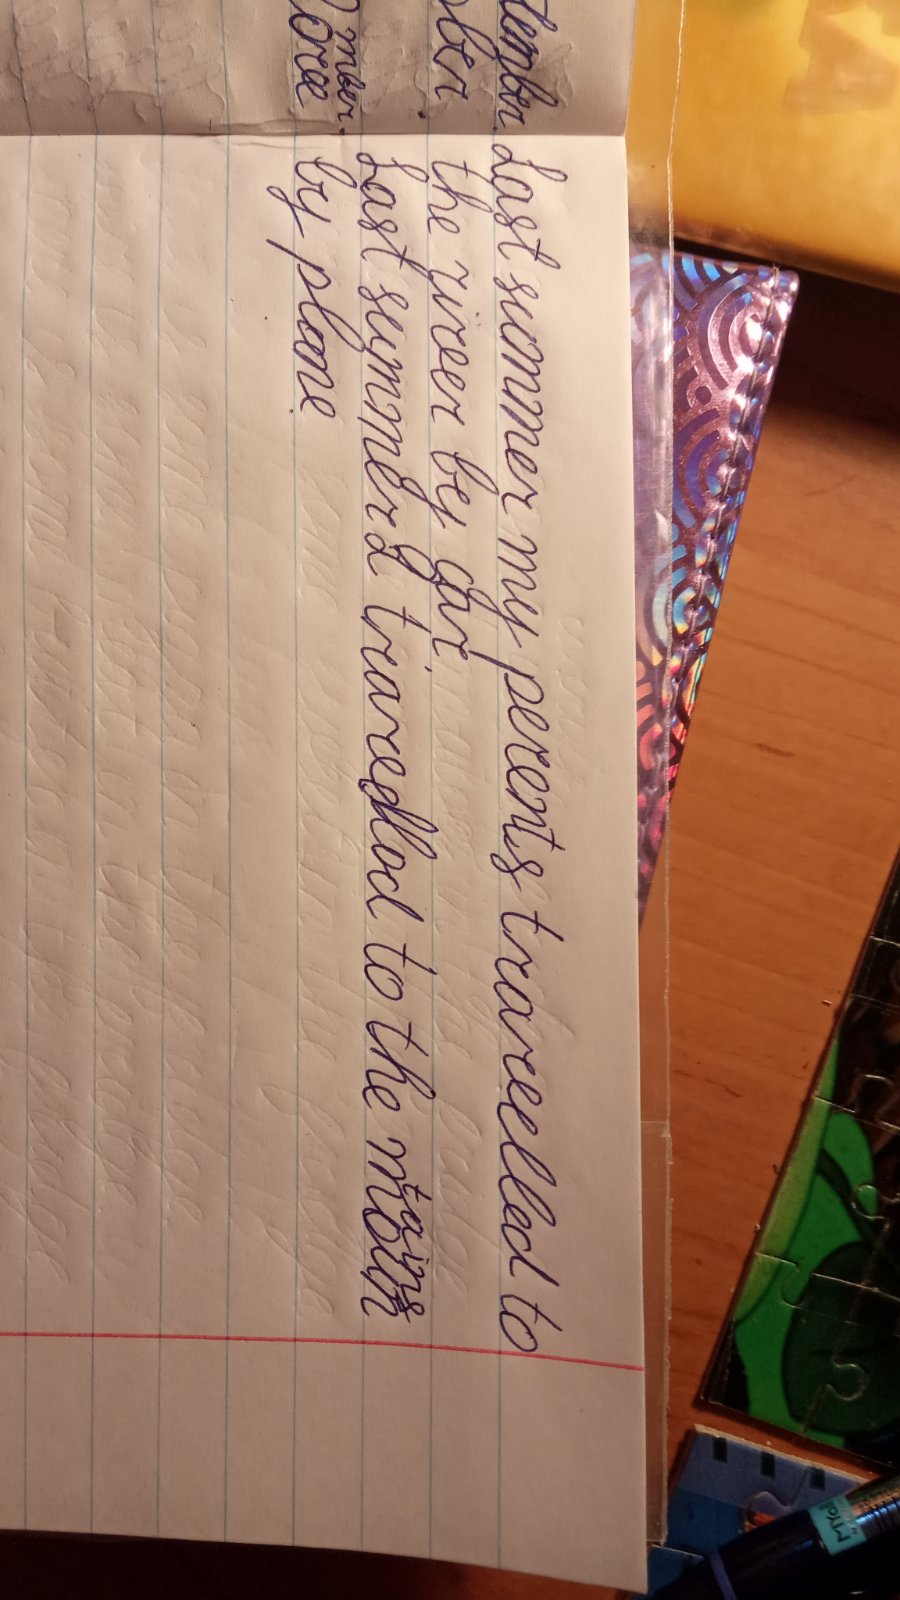 Last summer my perents travelled to
the river by car.
Last summer I travedlod to the moun
tains
by plane
tember.
ober
mber.